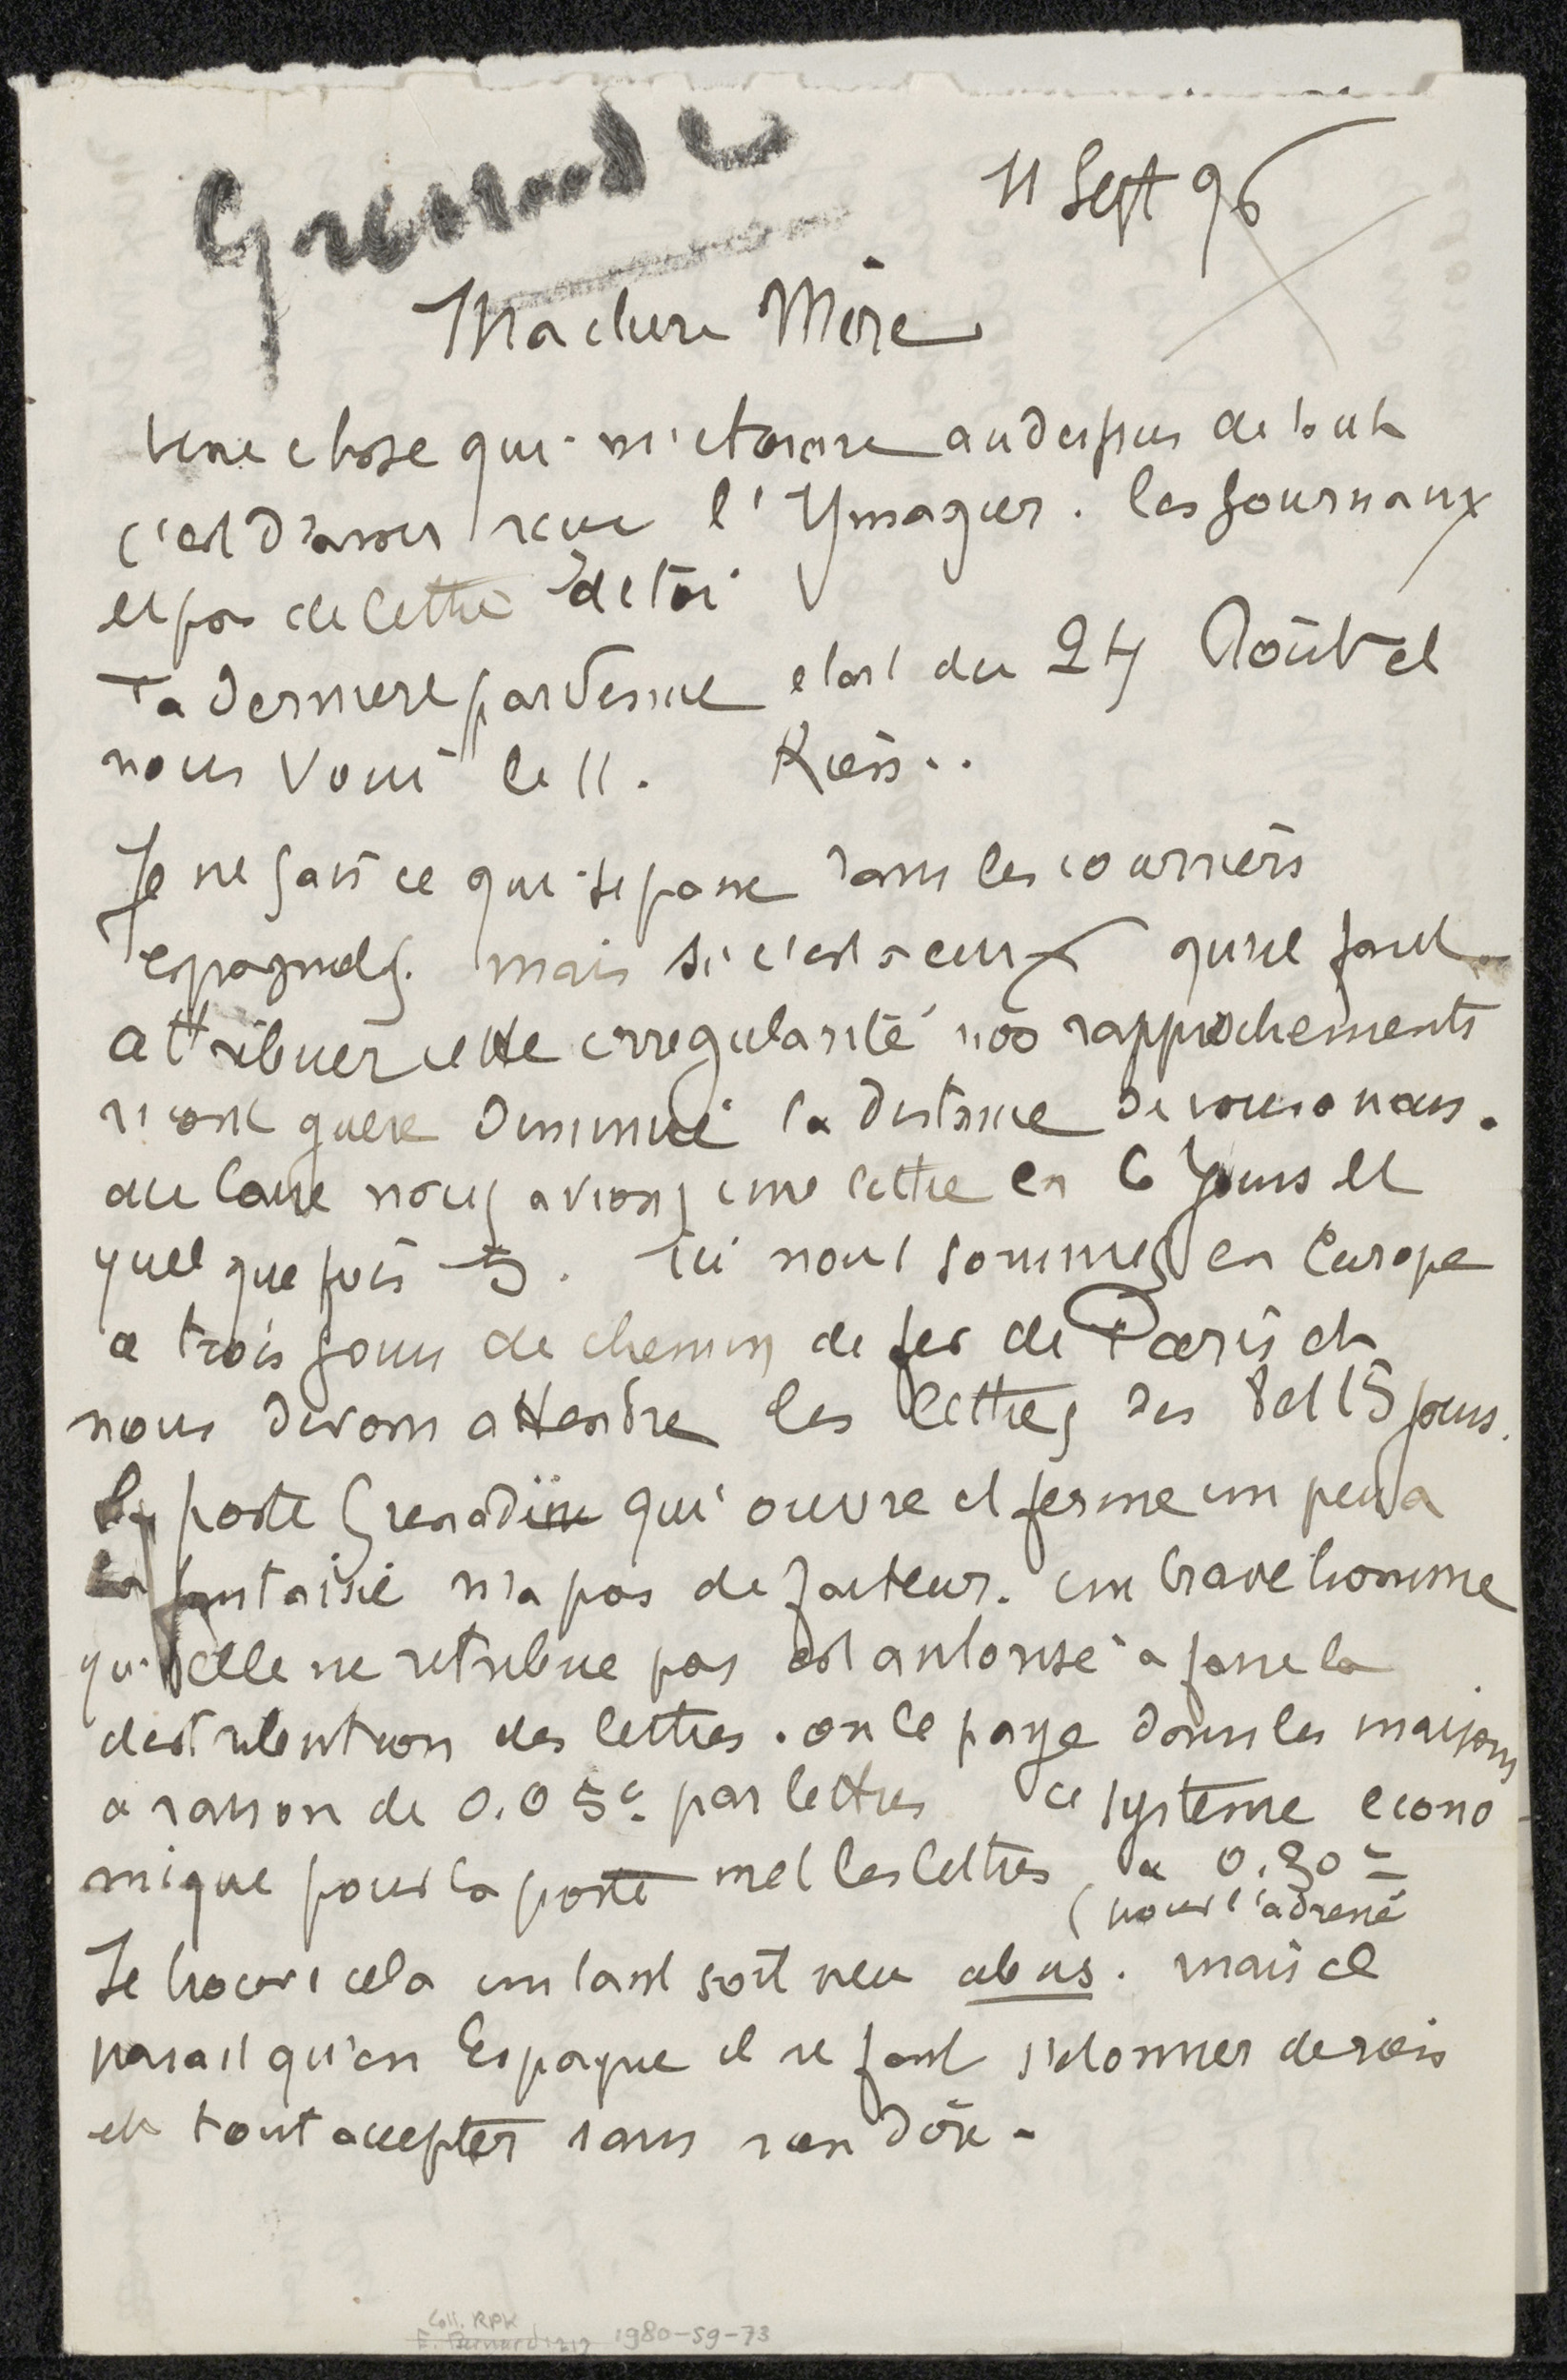 Grenade
11 Sept 96
Ma chere Mère
Une chose qui m'etonne audessus de tout
c'est d'avoir recu l'Ymagier. les Journaux
et pas de lettre de toi
Ta derniere parvenue etait du 24 Août et
nous voici le 11. Rien..
Je ne sais ce qui se passe dans les courriers
espagnols. mais si c'est a eux qu'il faut
attribuer cette irregularité nos rapprochements
n'ont guere diminué la distance de vous a nous.
au Caire nous avions une lettre en 6 Jours et
quelque fois 5. Ici nous sommes en Europe
a trois jours de chemin de fer de Paris et
nous devons attendre les lettres des 8 et 15 jours.
La poste Grenadine qui ouvre et ferme un peu a
la fantaisie n'a pas de facteur. un brave homme
qu'elle ne retribue pas est autorisé a faire la
distribution des lettres. on le paye dans les maisons
a raison de 0.05c par lettres ce systeme econo-
mique pour la poste met les lettres a 0.30c
(pour l'adressé
Je trouve cela un tant soit peu abus. mais il
parait qu'en Espagne il ne faut s'etonner de rien
et tout accepter sans rien dire.
Coll. RPK
E. Bernard 1980-59-73